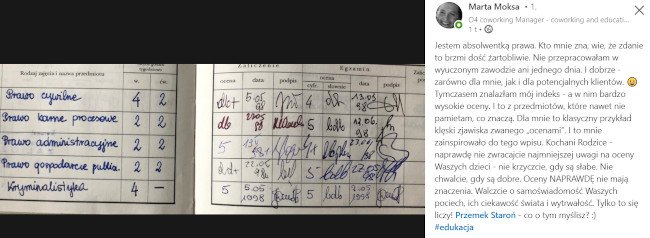 Rodzaj zajęcia i nazwa przedmiotu
w. ćw.
Zaliczenie Egzamin
ocena data podpis ocena data podpis
cyfr. słownie
Prawo cywilne 4 2 db+ 5.05 98 4 db 13.05 98
Prawo karne procesowe 2 2 db 5 bdb 12.06. 98
Prawo administracyjne 2 2 5
Prawo gospodarcze public. 2 2 5 bdb
Kryminalistyka 4 — 5 5.05 1998 5 bdb 1998
Marta Moksa • 1.
O4 coworking Manager - coworking and educati...
1 t •
Jestem absolwentką prawa. Kto mnie zna, wie, że zdanie
to brzmi dość żartobliwie. Nie przepracowałam w
wyuczonym zawodzie ani jednego dnia. I dobrze -
zarówno dla mnie, jak i dla potencjalnych klientów. 😉
Tymczasem znalazłam mój indeks - a w nim bardzo
wysokie oceny. I to z przedmiotów, które nawet nie
pamietam, co znaczą. Dla mnie to klasyczny przykład
klęski zjawiska zwanego „ocenami”. I to mnie
zainspirowało do tego wpisu. Kochani Rodzice -
naprawdę nie zwracajcie najmniejszej uwagi na oceny
Waszych dzieci - nie krzyczcie, gdy są słabe. Nie
chwalcie, gdy są dobre. Oceny NAPRAWDĘ nie mają
znaczenia. Walczcie o samoświadomość Waszych
pociech, ich ciekawość świata i wytrwałość. Tylko to się
liczy! Przemek Staroń - co o tym myślisz? :)
#edukacja